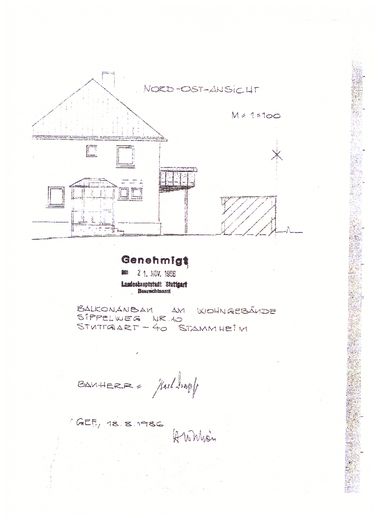 NORD-OST-ANSICHT
M = 1:100
Genehmigt
21. NOV. 1986
Landeshauptstadt Stuttgart
Baurechtsamt
BALKONANBAU AM WOHNGEBÄUDE
SIPPELWEG NR 10
STUTTGART-40 STAMMHEIM
BAUHERR =
GEF, 18.8.1986